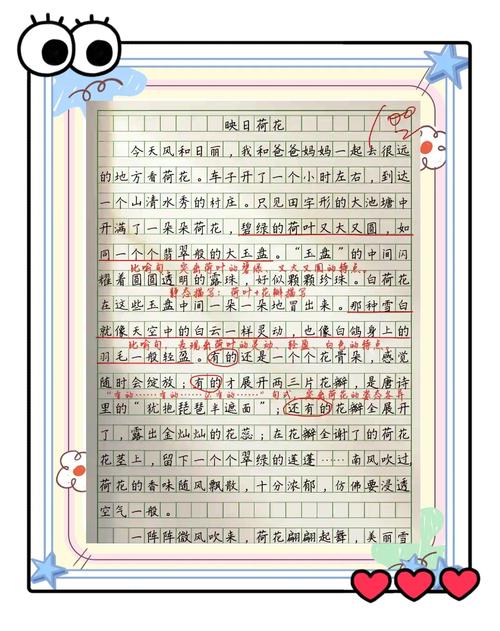 映日荷花
100
今天风和日丽，我和爸爸妈妈一起去很远
的地方看荷花。车子开了一个小时左右，到达
一个山清水秀的村庄。只见田字形的大池塘中
开满了一朵朵荷花，碧绿的荷叶又大又圆，如
同一个个翡翠般的大玉盘。“玉盘”的中间闪
比喻句，突出荷叶的碧绿、又大又圆的特点。
耀着圆圆透明的露珠，好似颗颗珍珠。白荷花
静态描写：荷叶+花瓣描写
在这些玉盘中间一朵一朵地冒出来。那种雪白
就像天空中的白云一样灵动，也像白鸽身上的
比喻句，表现出荷叶的灵动、轻盈、白色的特点。
羽毛一般轻盈。有的还是一个个花骨朵，感觉
随时会绽放；有的才展开两三片花瓣，是唐诗
“有的……有的……还有的”句式，突出荷花的姿态各异
里的“犹抱琵琶半遮面”；还有的花瓣全展开
了，露出金灿灿的花蕊；在花瓣全谢了的荷花
花茎上，留下一个个翠绿的莲蓬……南风吹过，
荷花的香味随风飘散，十分浓郁，仿佛要浸透
空气一般。
一阵阵微风吹来，荷花翩翩起舞，美丽雪